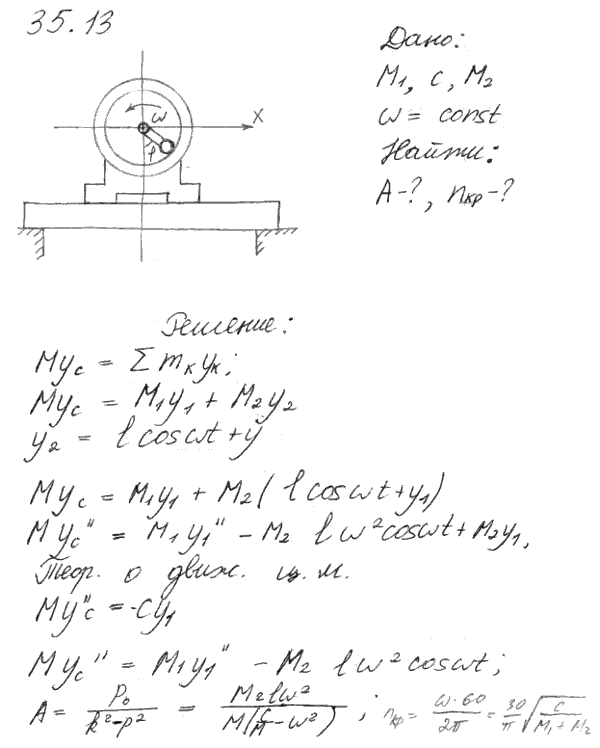 35.13
Дано:
M₁, c, M₂
ω = const
Найти:
A-?, nкр-?
ω
X
φ
Решение:
Myc = Σmкyк;
Myc = M₁y₁ + M₂y₂
y₂ = l cos ωt + y
Myc = M₁y₁ + M₂(l cos ωt + y₁)
Myc'' = M₁y₁'' - M₂ l ω² cos ωt + M₂y₁,
Теор. о движ. ц. м.
My''c = -cy₁
Myc'' = M₁y₁'' - M₂ l ω² cos ωt;
A = P₀/(k²-p²) = M₂lω²/(M(c/M - ω²)) ; nкр = ω·60/2π = 30/π √(c/(M₁+M₂))